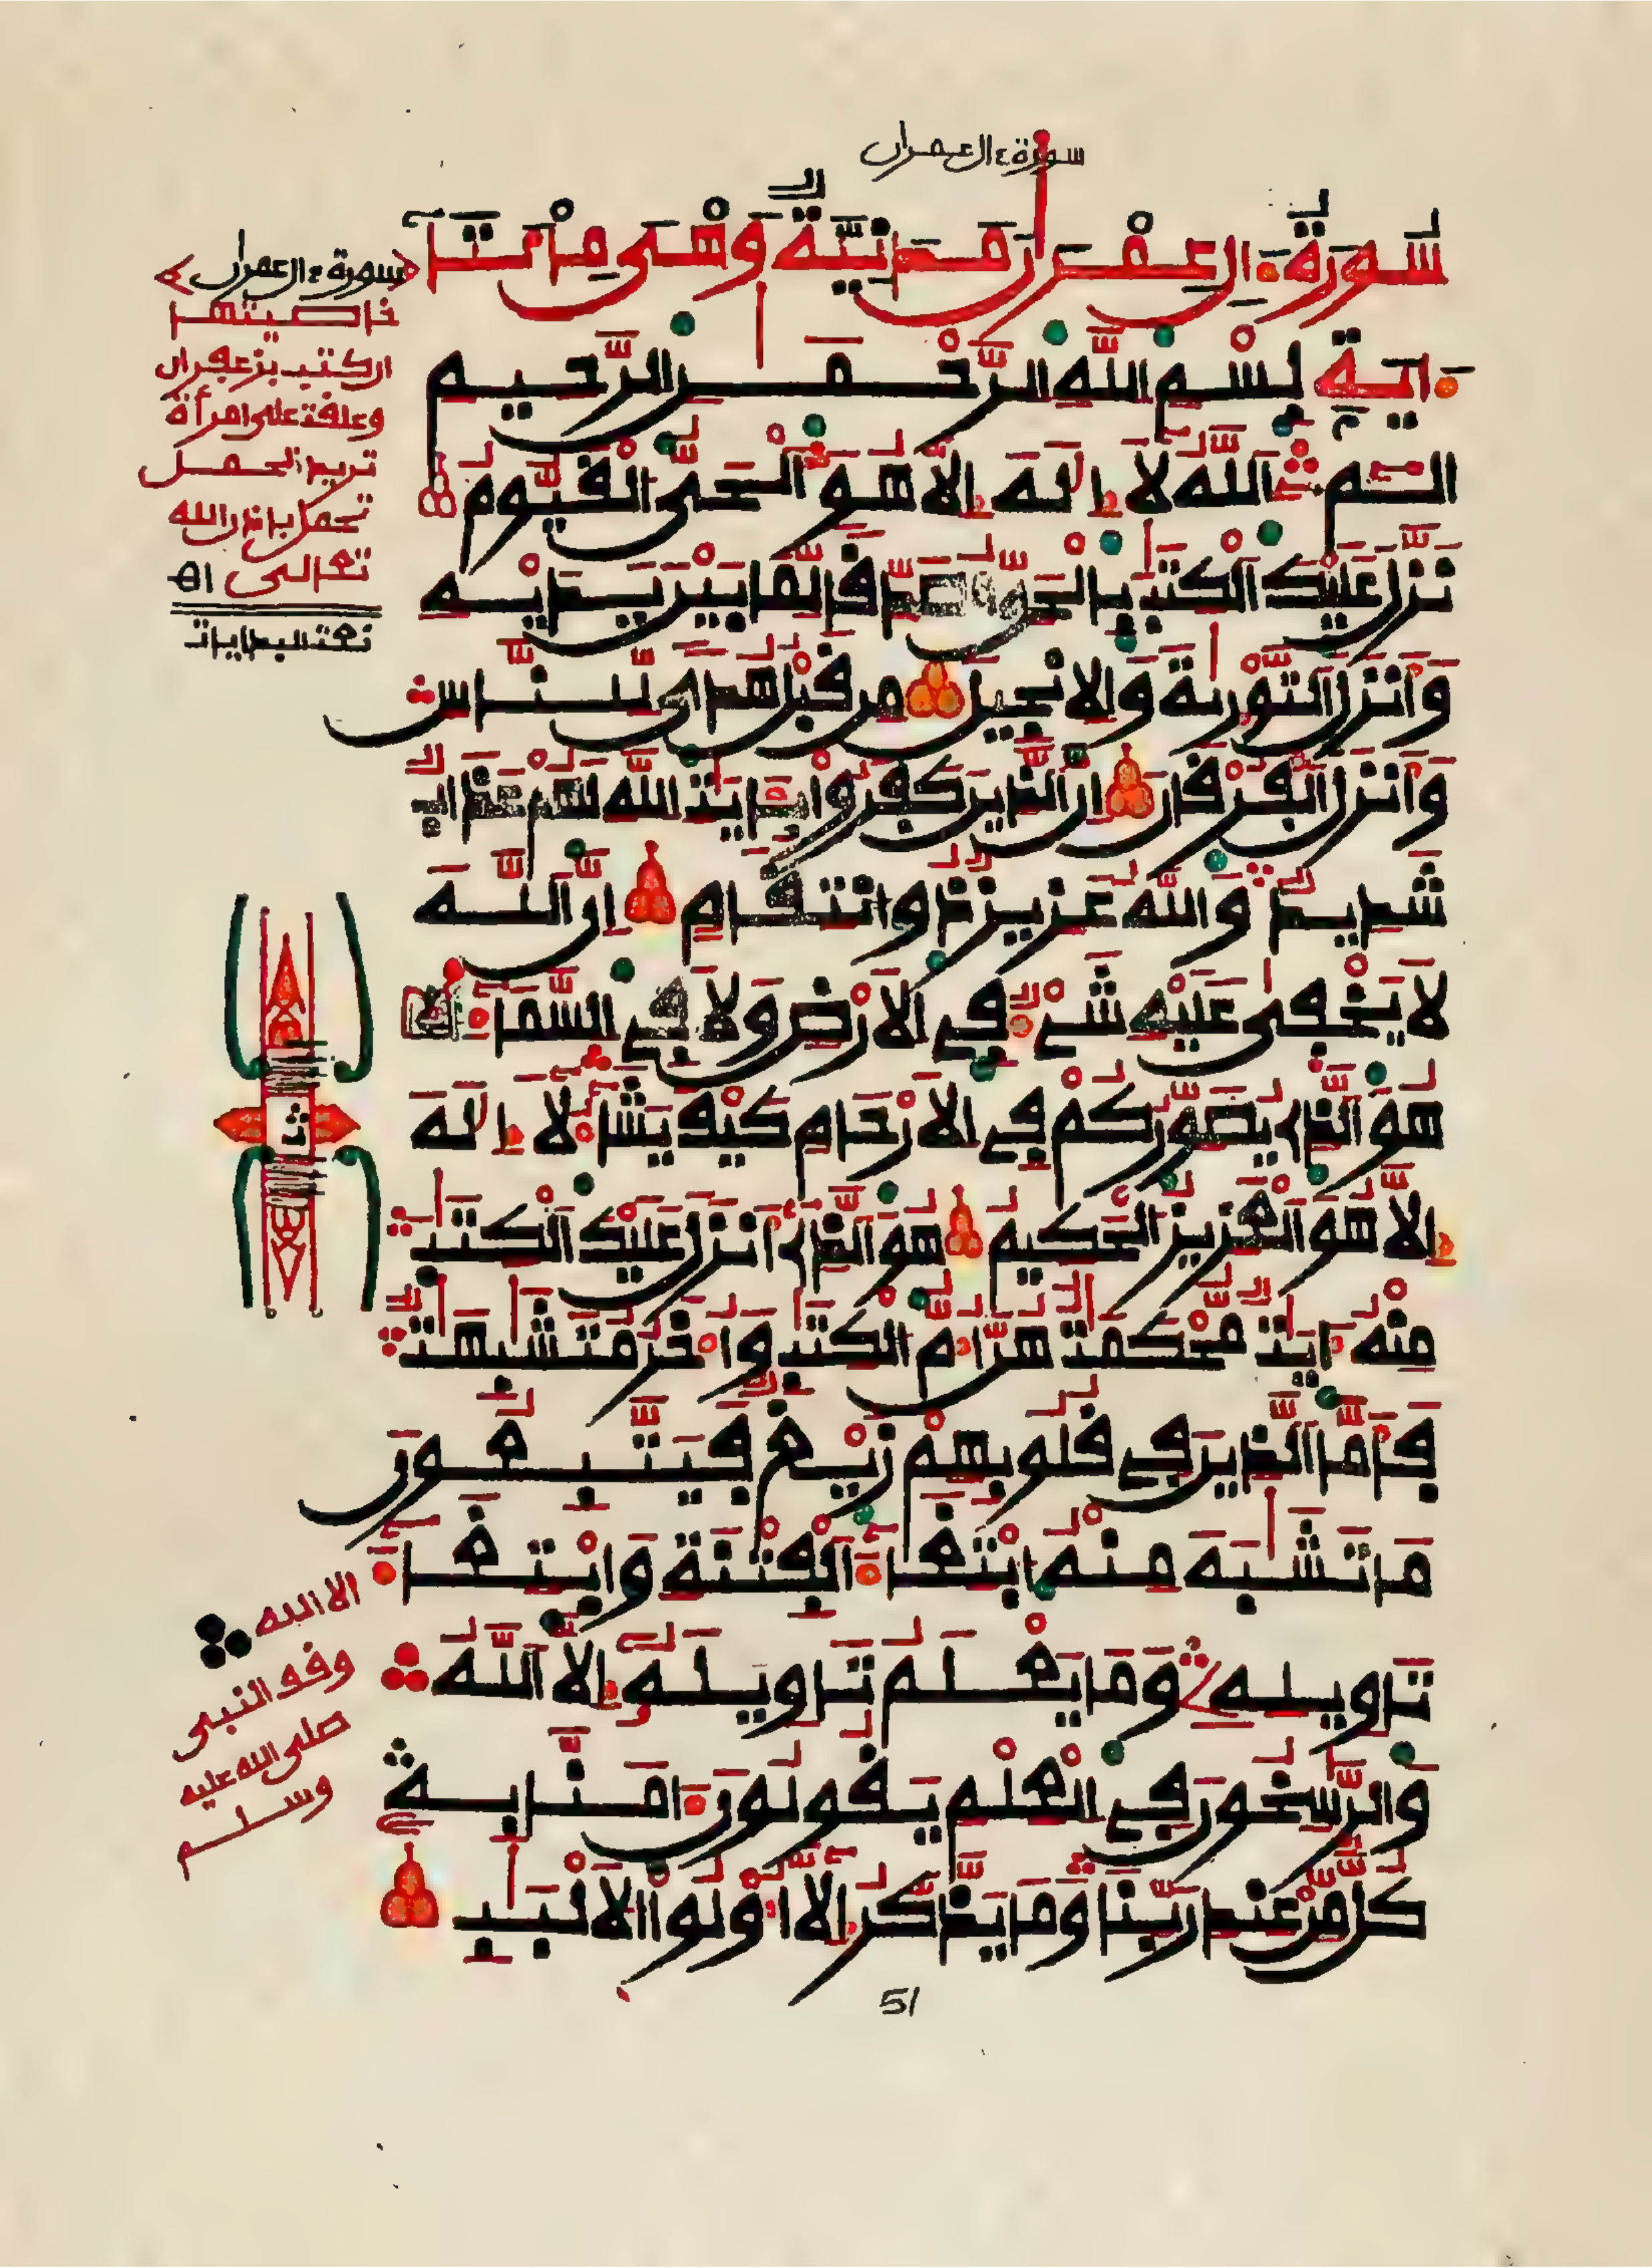 سورة ءال عمران
سُورَةُ ءَالِ عِمْرَٰنَ مَدَنِيَّةٌ وَهْىَ مِاْئَتَا
ءَايَةٍ بِسْمِ اللَّهِ الرَّحْمَٰنِ الرَّحِيمِ
الٓمٓ اَللَّهُ لَا إِلَٰهَ إِلَّا هُوَ اَلْحَىُّ اَلْقَيُّومُ
نَزَّلَ عَلَيْكَ اَلْكِتَٰبَ بِالْحَقِّ مُصَدِّقاً لِّمَا بَيْنَ يَدَيْهِ
وَأَنزَلَ اَلتَّوْرَىٰةَ وَالِانجِيلَ مِن قَبْلُ هُدىً لِّلنَّاسِ
وَأَنزَلَ اَلْفُرْقَانَ إِنَّ اَلذِينَ كَفَرُواْ بِـَٔايَٰتِ اِللَّهِ لَهُمْ عَذَابٌ
شَدِيدٌ وَاللَّهُ عَزِيزٌ ذُو اُنتِقَامٍ إِنَّ اَللَّهَ
لَا يَخْفَىٰ عَلَيْهِ شَىْءٌ فِى اِلَارْضِ وَلَا فِى اِلسَّمَآءِ
هُوَ اَلذِى يُصَوِّرُكُمْ فِى اِلَارْحَامِ كَيْفَ يَشَآءُ لَا إِلَٰهَ
إِلَّا هُوَ اَلْعَزِيزُ اُلْحَكِيمُ هُوَ اَلذِى أَنزَلَ عَلَيْكَ اَلْكِتَٰبَ
مِنْهُ ءَايَٰتٌ مُّحْكَمَٰتٌ هُنَّ أُمُّ اُلْكِتَٰبِ وَأُخَرُ مُتَشَٰبِهَٰتٌ
فَأَمَّا اَلذِينَ فِى قُلُوبِهِمْ زَيْغٌ فَيَتَّبِعُونَ
مَا تَشَٰبَهَ مِنْهُ اُبْتِغَآءَ اَلْفِتْنَةِ وَابْتِغَآءَ
تَاوِيلِهِ وَمَا يَعْلَمُ تَاوِيلَهُ إِلَّا اَللَّهُ
وَالرَّٰسِخُونَ فِى اِلْعِلْمِ يَقُولُونَ ءَامَنَّا بِهِ
كُلٌّ مِّنْ عِندِ رَبِّنَا وَمَا يَذَّكَّرُ إِلَّا أُوْلُواْ اُلَالْبَٰبِ
51
سورة ءال عمران
خاصيتها
ان كتب بزعفران
وعلقت على امرأة
تريد الحمل
تحمل باذن الله
تعالى اه
ث
الا الله
وقف النبى
صلى الله عليه
وسلم